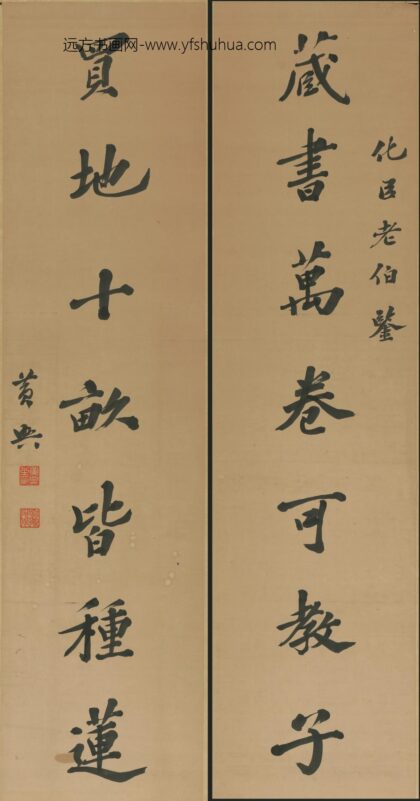 远方书画网-www.yfshuhua.com
化臣老伯鑒
藏書萬卷可教子
買地十畝皆種蓮
黄興